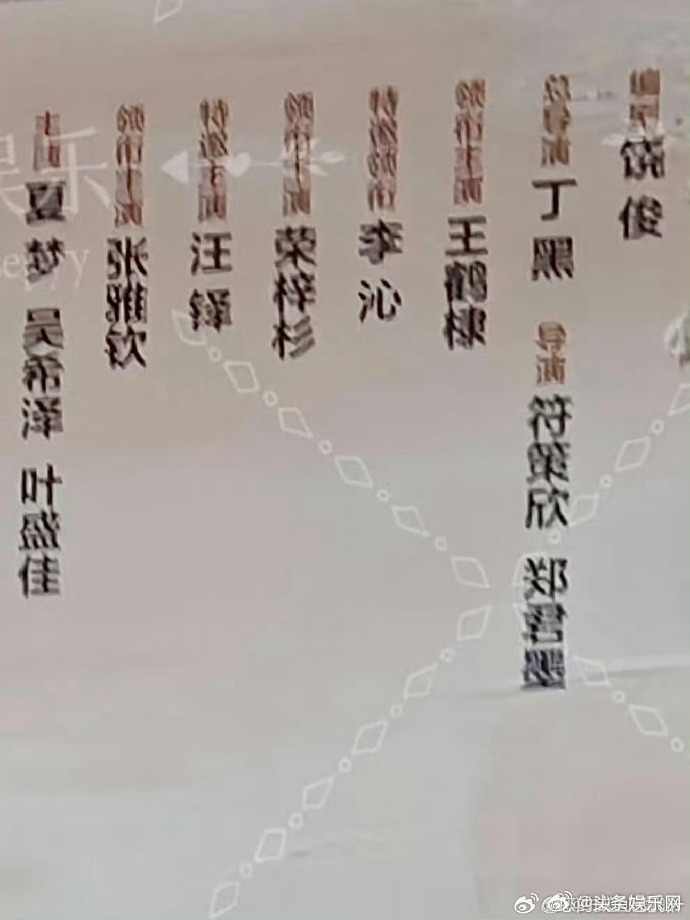 编剧
饶俊
总导演
丁黑
导演
符策欣 郑君墨
领衔主演
王鹤棣
特别
李沁
领衔主演
荣梓杉
特邀主演
汪铎
领衔主演
张雅钦
主演
夏梦 吴希泽 叶盛佳
娱乐
头条娱乐网